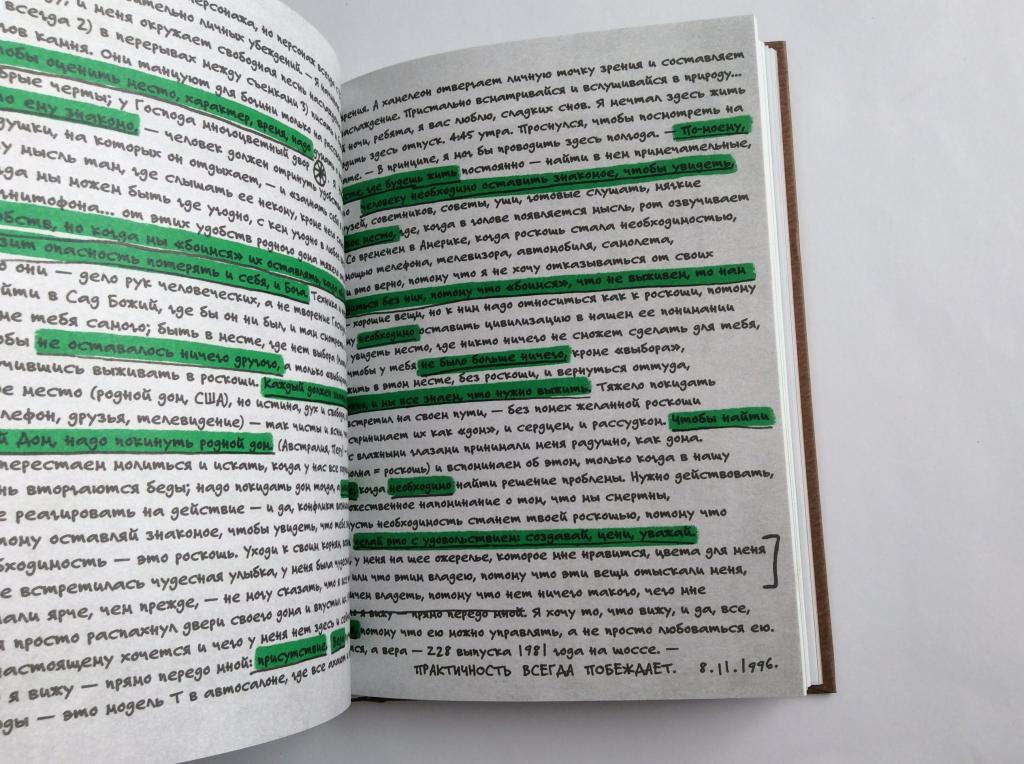 персонажа, но персонаж
личных убеждений. —
и меня окружает свободная песнь
всегда 2) в перерывах между съемками 3)
камня. Они танцуют для богини только на
оценить место, характер, время, надо
черты; у Господа многоцветный двор
ему знакомо, — человек должен отринуть
на которых он отдыхает, — и сказать себе,
мысль там, где слышать ее некому, кроме
мы можем быть где угодно, с кем угодно в любое
от этих удобств родного дома тяжело
но когда мы «боимся» их оставлять,
опасность потерять и себя, и Бога. Техника
они — дело рук человеческих, а не творение
в Сад Божий, где бы он ни был, и там
тебя самого; быть в месте, где нет выбора
не оставалось ничего другого, а только
выживать в роскоши. Каждый должен
место (родной дом, США), но истина, дух и
друзья, телевидение) — так чисты и
Дом, надо покинуть родной дом (Австралия,
перестаем молиться и искать, когда у нас все
вторгаются беды; надо покидать дом тогда,
реагировать на действие — и да, конфликт
оставляй знакомое, чтобы увидеть, что
— это роскошь. Уходи к своим корням,
встретилась чудесная улыбка, у меня была
ярче, чем прежде, — не могу сказать, что я
просто распахнул двери своего дома и впустил
хочется и чего у меня нет здесь и
я вижу — прямо передо мной: присутствие.
— это модель Т в автосалоне, где все
А хамелеон отвергает личную точку зрения и составляет
Пристально всматривайся и вслушивайся в природу...
ночи, ребята, я вас люблю, сладких снов. Я мечтал здесь жить
здесь отпуск. 4:45 утра. Проснулся, чтобы посмотреть на
— В принципе, я мог бы проводить здесь полгода. — По-моему,
где будешь жить постоянно — найти в нем примечательные,
человеку необходимо оставить знакомое, чтобы увидеть,
советников, советы, уши, готовые слушать, мягкие
место, где, когда в голове появляется мысль, рот озвучивает
Со временем в Америке, когда роскошь стала необходимостью,
телефона, телевизора, автомобиля, самолета,
и это верно, потому что я не хочу отказываться от своих
без них, потому что «боимся», что не выживем, то нам
хорошие вещи, но к ним надо относиться как к роскоши, потому
необходимо оставить цивилизацию в нашем ее понимании
увидеть место, где никто ничего не сможет сделать для тебя,
чтобы у тебя не было больше ничего, кроме «выбора»,
жить в этом месте, без роскоши, и вернуться оттуда,
и мы все знаем, что нужно выжить. Тяжело покидать
на своем пути, — без помех желанной роскоши
их как «дом», и сердцем, и рассудком. Чтобы найти
с влажными глазами принимали меня радушно, как дома.
= роскошь) и вспоминаем об этом, только когда в нашу
когда необходимо найти решение проблемы. Нужно действовать,
напоминание о том, что мы смертны,
необходимость станет твоей роскошью, потому что
это с удовольствием: создавай, цени, уважай.
у меня на шее ожерелье, которое мне нравится, цвета для меня
что этим владею, потому что эти вещи отыскали меня,
владеть, потому что нет ничего такого, чего мне
я вижу — прямо передо мной. Я хочу то, что вижу, и да, все,
потому что ею можно управлять, а не просто любоваться ею.
а вера — 228 выпуска 1981 года на шоссе. —
ПРАКТИЧНОСТЬ ВСЕГДА ПОБЕЖДАЕТ. 8.11.1996.